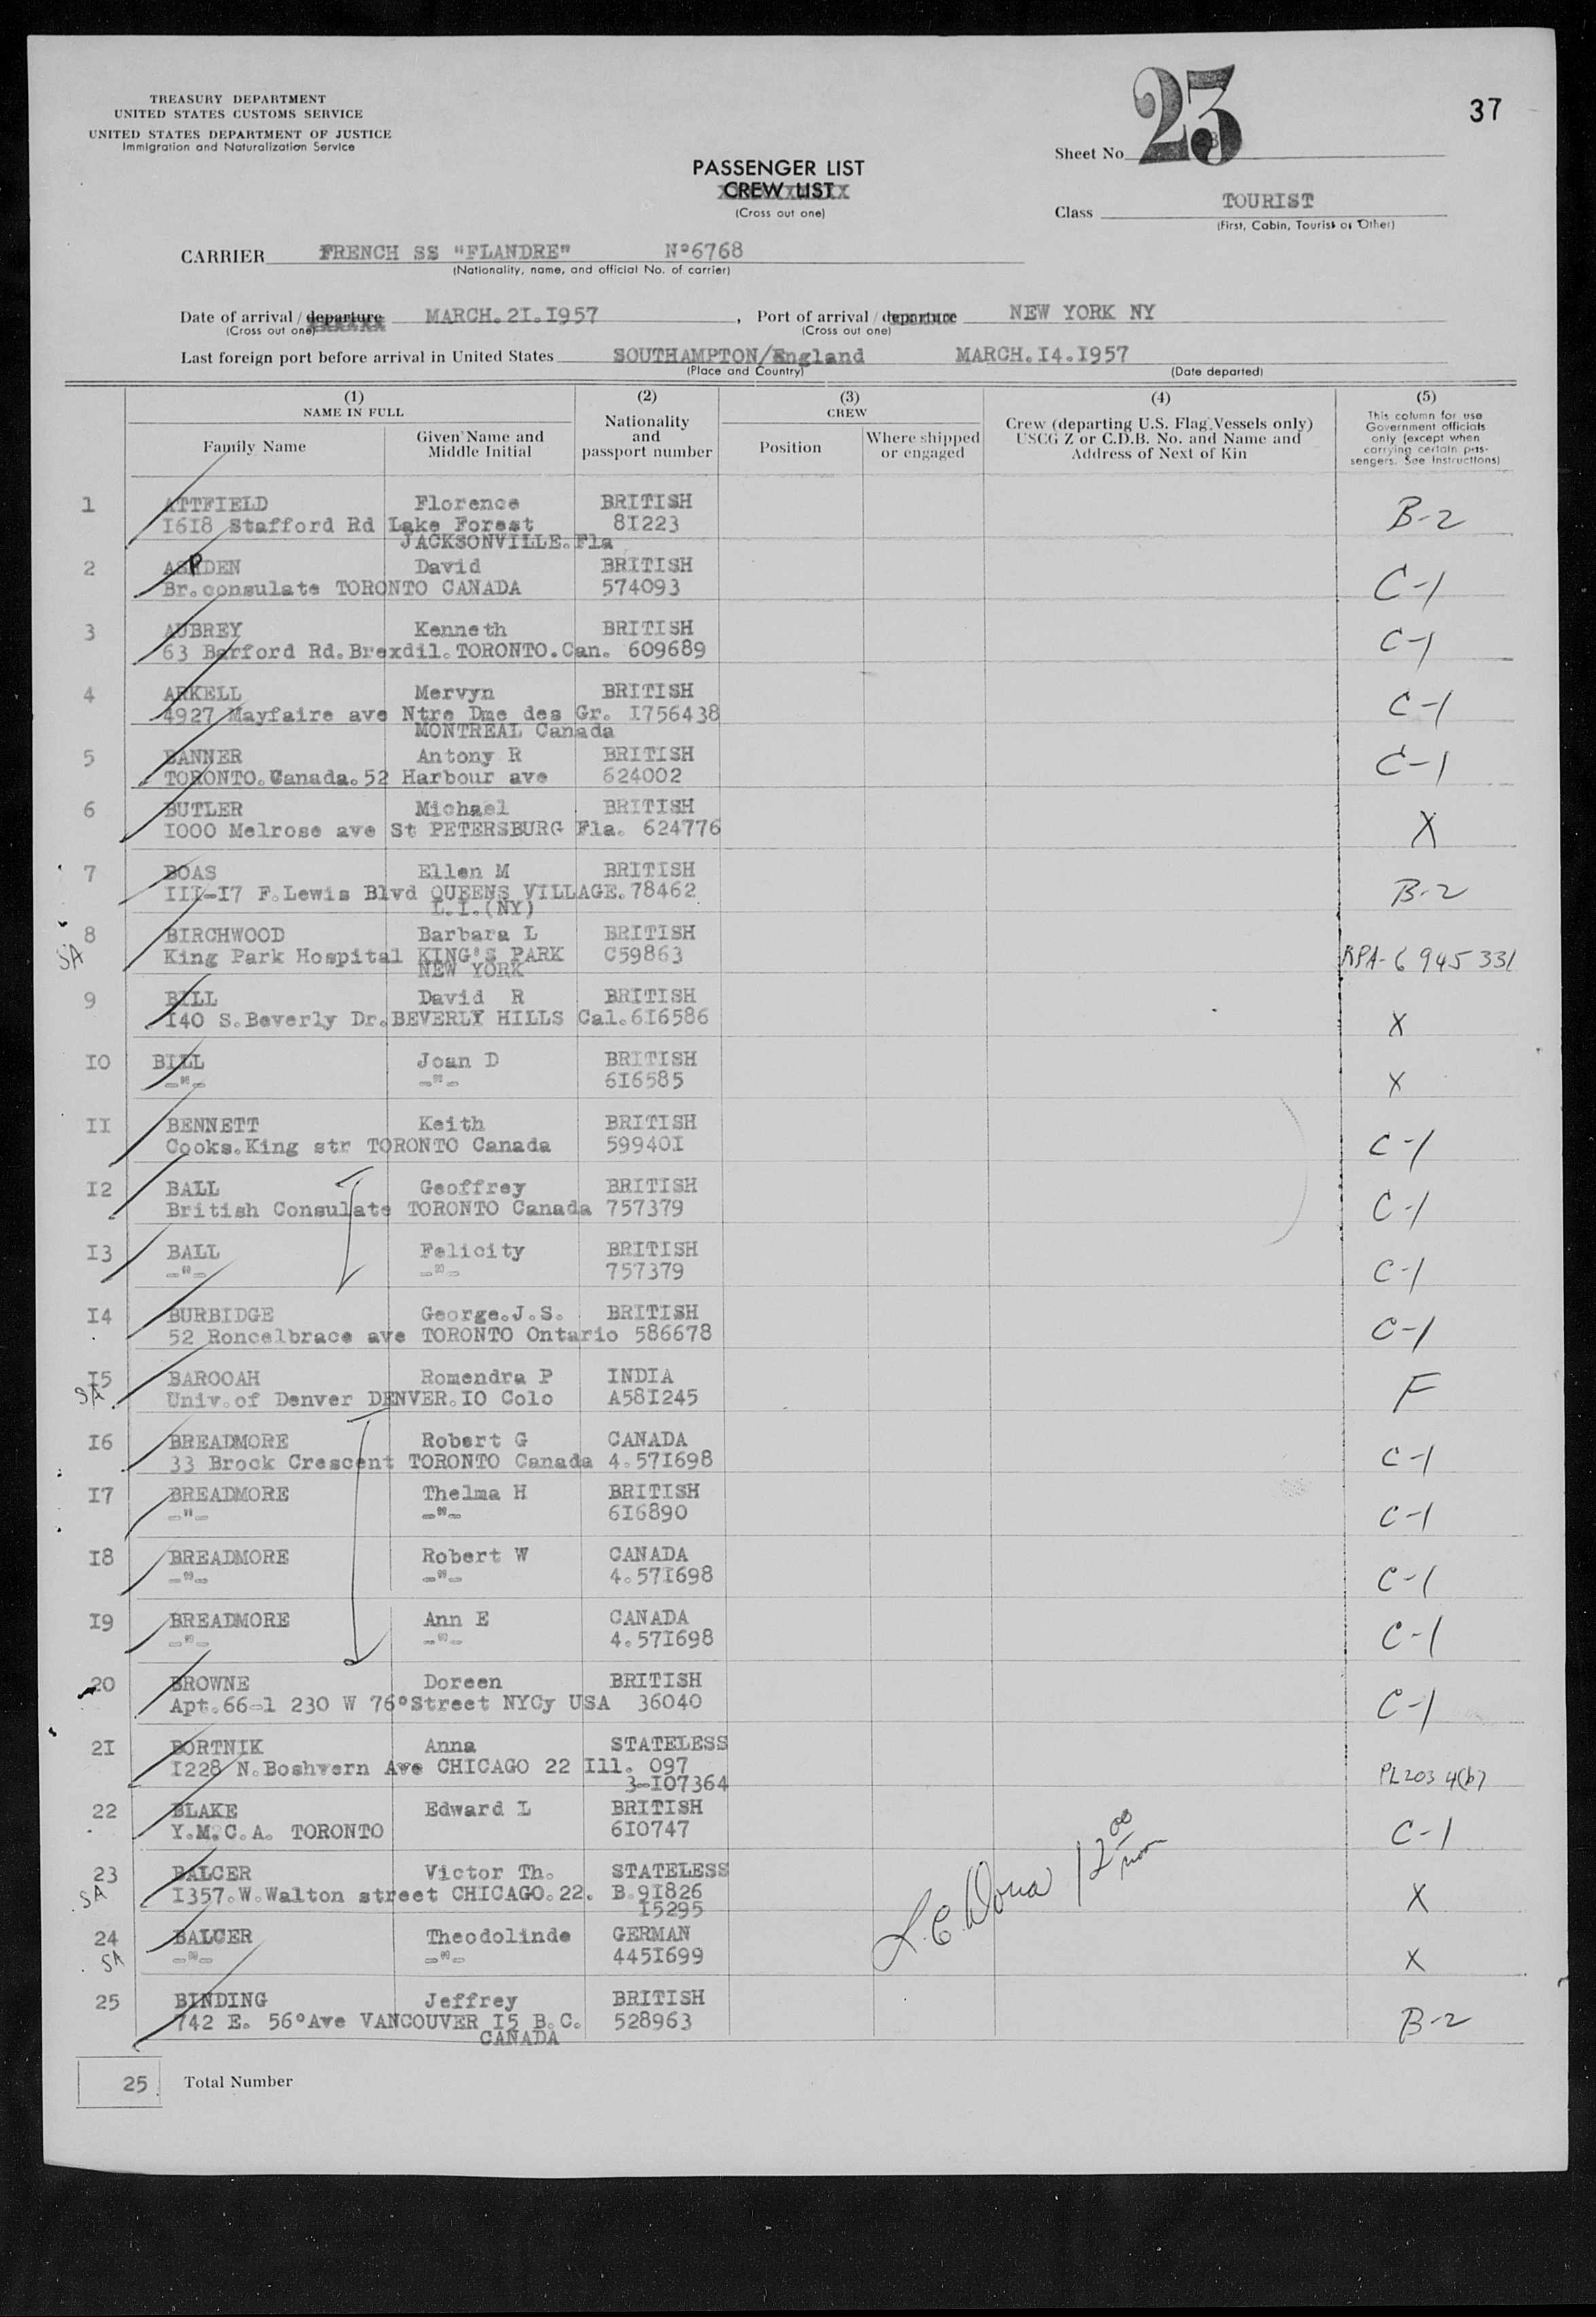 TREASURY DEPARTMENT
UNITED STATES CUSTOMS SERVICE
UNITED STATES DEPARTMENT OF JUSTICE
Immigration and Naturalization Service
23
37
Sheet No
PASSENGER LIST
CREW LIST
(Cross out one)
Class TOURIST
(First, Cabin, Tourist or Other)
CARRIER FRENCH SS "FLANDRE" Nº6768
(Nationality, name, and official No. of carrier)
Date of arrival / departure MARCH.2I.I957 , Port of arrival / departure NEW YORK NY
(Cross out one) (Cross out one)
Last foreign port before arrival in United States SOUTHAMPTON/England MARCH.I4.I957
(Place and Country) (Date departed)
(1) (2) (3) (4) (5)
NAME IN FULL
Family Name
Given Name and Middle Initial
Nationality and passport number
CREW
Position
Where shipped or engaged
Crew (departing U.S. Flag Vessels only)
USCG Z or C.D.B. No. and Name and
Address of Next of Kin
This column for use
Government officials
only (except when
carrying certain pas-
sengers. See Instructions)
1 ATTFIELD Florence BRITISH B-2
I6I8 Stafford Rd Lake Forest 8I223
JACKSONVILLE.Fla
2 ASPDEN David BRITISH C-1
Br.consulate TORONTO CANADA 574093
3 AUBREY Kenneth BRITISH C-1
63 Barford Rd.Brexdil.TORONTO.Can. 609689
4 ARKELL Mervyn BRITISH C-1
4927 Mayfaire ave Ntre Dme des Gr. I756438
MONTREAL Canada
5 BANNER Antony R BRITISH C-1
TORONTO.Canada.52 Harbour ave 624002
6 BUTLER Michael BRITISH X
I000 Melrose ave St PETERSBURG Fla. 624776
7 BOAS Ellen M BRITISH B-2
III-I7 F.Lewis Blvd QUEENS VILLAGE.78462
L.I.(NY)
8 BIRCHWOOD Barbara L BRITISH
SA King Park Hospital KING'S PARK C59863 RPA-6 945 331
NEW YORK
9 BILL David R BRITISH X
I40 S.Beverly Dr.BEVERLY HILLS Cal.6I6586
I0 BILL Joan D BRITISH X
-"- -"- 6I6585
II BENNETT Keith BRITISH C-1
Cooks.King str TORONTO Canada 59940I
I2 BALL Geoffrey BRITISH C-1
British Consulate TORONTO Canada 757379
I3 BALL Felicity BRITISH C-1
-"- -"- 757379
I4 BURBIDGE George.J.S. BRITISH C-1
52 Roncelbrace ave TORONTO Ontario 586678
I5 BAROOAH Romendra P INDIA F
SA Univ.of Denver DENVER.IO Colo A58I245
I6 BREADMORE Robert G CANADA C-1
33 Brock Crescent TORONTO Canada 4.57I698
I7 BREADMORE Thelma H BRITISH C-1
-"- -"- 6I6890
I8 BREADMORE Robert W CANADA C-1
-"- -"- 4.57I698
I9 BREADMORE Ann E CANADA C-1
-"- -"- 4.57I698
20 BROWNE Doreen BRITISH C-1
Apt.66-l 230 W 76ºStreet NYCy USA 36040
2I BORTNIK Anna STATELESS
I228 N.Boshvern Ave CHICAGO 22 Ill. 097 PL203 4(b)
3-I07364
22 BLAKE Edward L BRITISH C-1
Y.M.C.A. TORONTO 6I0747
23 BALCER Victor Th. STATELESS X
SA I357.W.Walton street CHICAGO.22. B.9I826
I5295
12 00 noon
24 BALCER Theodolinde GERMAN X
SA -"- -"- 445I699
25 BINDING Jeffrey BRITISH B-2
742 E. 56ºAve VANCOUVER I5 B.C. 528963
CANADA
25 Total Number